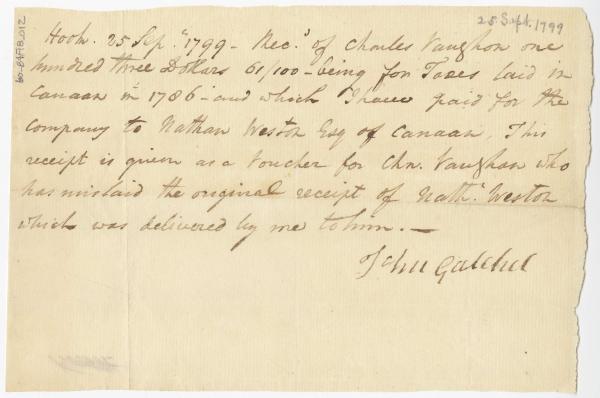 25 Sept. 1799
60-8498_012
Hook. 25 Sep.r 1799 - Rec.d of Charles Vaughan one
hundred three Dollars 61/100 - being for Taxes laid in
Canaan in 1786 - and which I have paid for the
company to Nathan Weston Esq of Canaan. This
receipt is given as a Voucher for Chs. Vaughan who
has mislaid the original receipt of Nath.l Weston
which was delivered by me to him. —
John